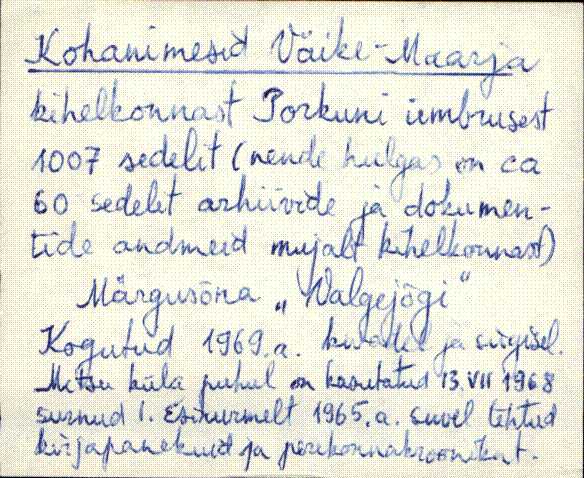 Kohanimesid Väike-Maarja
kihelkonnast Porkuni ümbrusest
1007 sedelit (nende hulgas on ca
60 sedelit arhiivide ja dokumen-
tide andmeid mujalt kihelkonnast)
Märgusõna „Valgejõgi"
Kogutud 1969.a. kevadel ja sügisel.
küla puhul on kasutatud 13.VII 1968
surnud I. 1965.a. suvel tehtud
kirjapanekuid ja perekonnakroonikat.